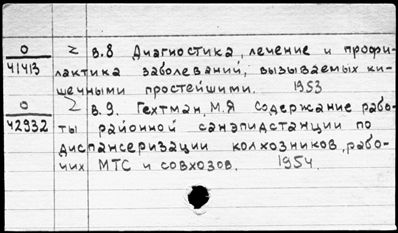 О 2 в.8 Диагностика, лечение и профи-
41413 лактика заболеваний, вызываемых ки-
шечными простейшими. 1953
О 2 в.9. Гехтман, М.Я Содержание рабо-
42932 ты районной санэпидстанции по
диспансеризации колхозников, рабо-
чих МТС и совхозов. 1954.